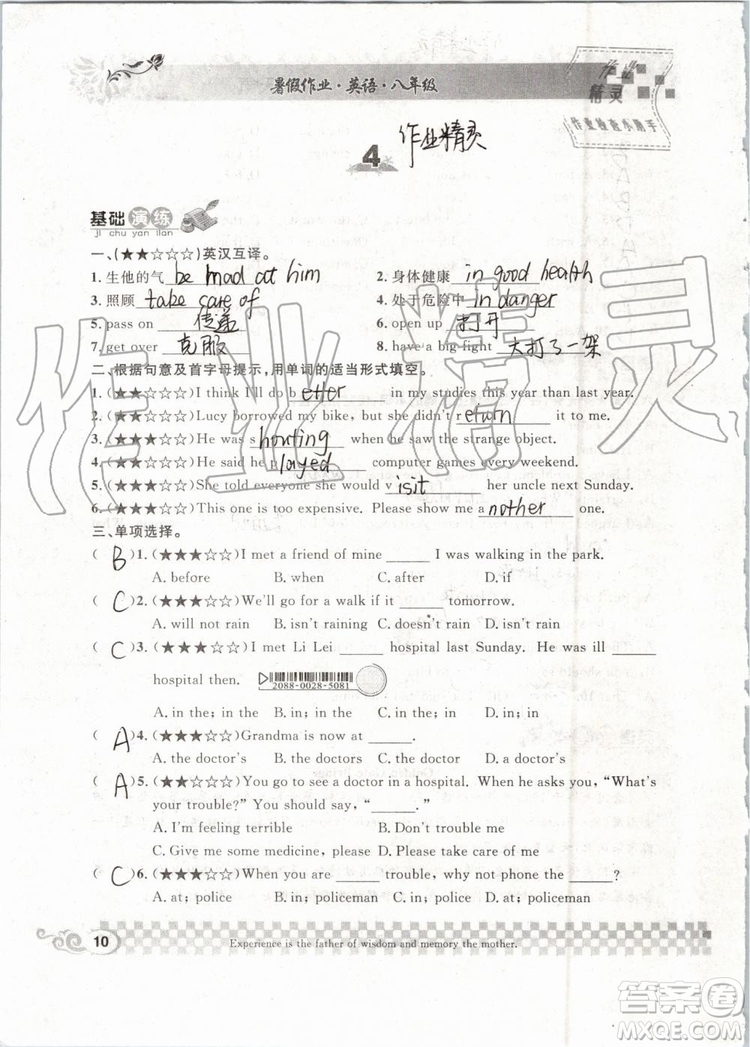 暑假作业·英语·八年级
作业
精灵
作业检查小助手
4 作业精灵
基础演练
ji chu yan lian
一、(★★☆☆☆)英汉互译。
1. 生他的气 be mad at him 2. 身体健康 in good health
3. 照顾 take care of 4. 处于危险中 in danger
5. pass on 传递 6. open up 打开
7. get over 克服 8. have a big fight 大打了一架
二、根据句意及首字母提示,用单词的适当形式填空。
1. (★★☆☆☆)I think I'll do b etter in my studies this year than last year.
2. (★★☆☆☆)Lucy borrowed my bike, but she didn't r eturn it to me.
3. (★★★☆☆)He was s houting when he saw the strange object.
4. (★★★☆☆)He said he p layed computer games every weekend.
5. (★★★☆☆)She told everyone she would v isit her uncle next Sunday.
6. (★★★☆☆)This one is too expensive. Please show me a nother one.
三、单项选择。
( B )1. (★★★☆☆)I met a friend of mine ______ I was walking in the park.
A. before B. when C. after D. if
( C )2. (★★★☆☆)We'll go for a walk if it ______ tomorrow.
A. will not rain B. isn't raining C. doesn't rain D. isn't rain
( C )3. (★★★☆☆)I met Li Lei ______ hospital last Sunday. He was ill ______
hospital then. 2088-0028-5081
A. in the; in the B. in; in the C. in the; in D. in; in
( A )4. (★★★☆☆)Grandma is now at ______.
A. the doctor's B. doctors C. the doctor D. a doctor
( A )5. (★★★☆☆)You go to see a doctor in a hospital. When he asks you, "What's
your trouble?" You should say, "______."
A. I'm feeling terrible B. Don't trouble me
C. Give me some medicine, please D. Please take care of me
( C )6. (★★★☆☆)When you are ______ trouble, why not phone the ______?
A. at; police B. at; policeman C. in; police D. in; policeman
10 Experience is the father of wisdom and memory the mother.
作业精灵
答案圈
MXQE.COM